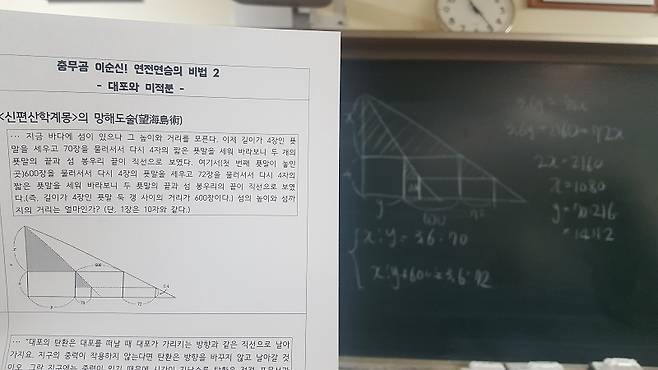 충무공 이순신! 연전연승의 비법 2
- 대포와 미적분 -
<신편산학계몽>의 망해도술(望海島術)
… 지금 바다에 섬이 있으나 그 높이와 거리를 모른다. 이제 길이가 4장인 푯
말을 세우고 70장을 물러서서 다시 4자의 짧은 푯말을 세워 바라보니 두 개의
푯말의 끝과 섬 봉우리 끝이 직선으로 보였다. 여기서(첫 번째 푯말이 놓인
곳)600장을 물러서서 다시 4장의 푯말을 세우고 72장을 물러서서 다시 4자의
짧은 푯말을 세워 바라보니 두 푯말의 끝과 섬 봉우리의 끝이 직선으로 보였
다.(즉, 길이가 4장인 푯말 두 갱 사이의 거리가 600장이다.) 섬의 높이와 섬까
지의 거리는 얼마인가? (단, 1장은 10자와 같다.)
600
"대포의 탄환은 대포를 떠날 때 대포가 가리키는 방향과 같은 직선으로 날아
가지요. 지구의 중력이 작용하지 않는다면 탄환은 방향을 바꾸지 않고 날아갈 것
x
y
600
72
x:y=3.6:70
x:y+600=3.6:72
3.6y=70x
3.6y+2160=72x
2x=2160
x=1080